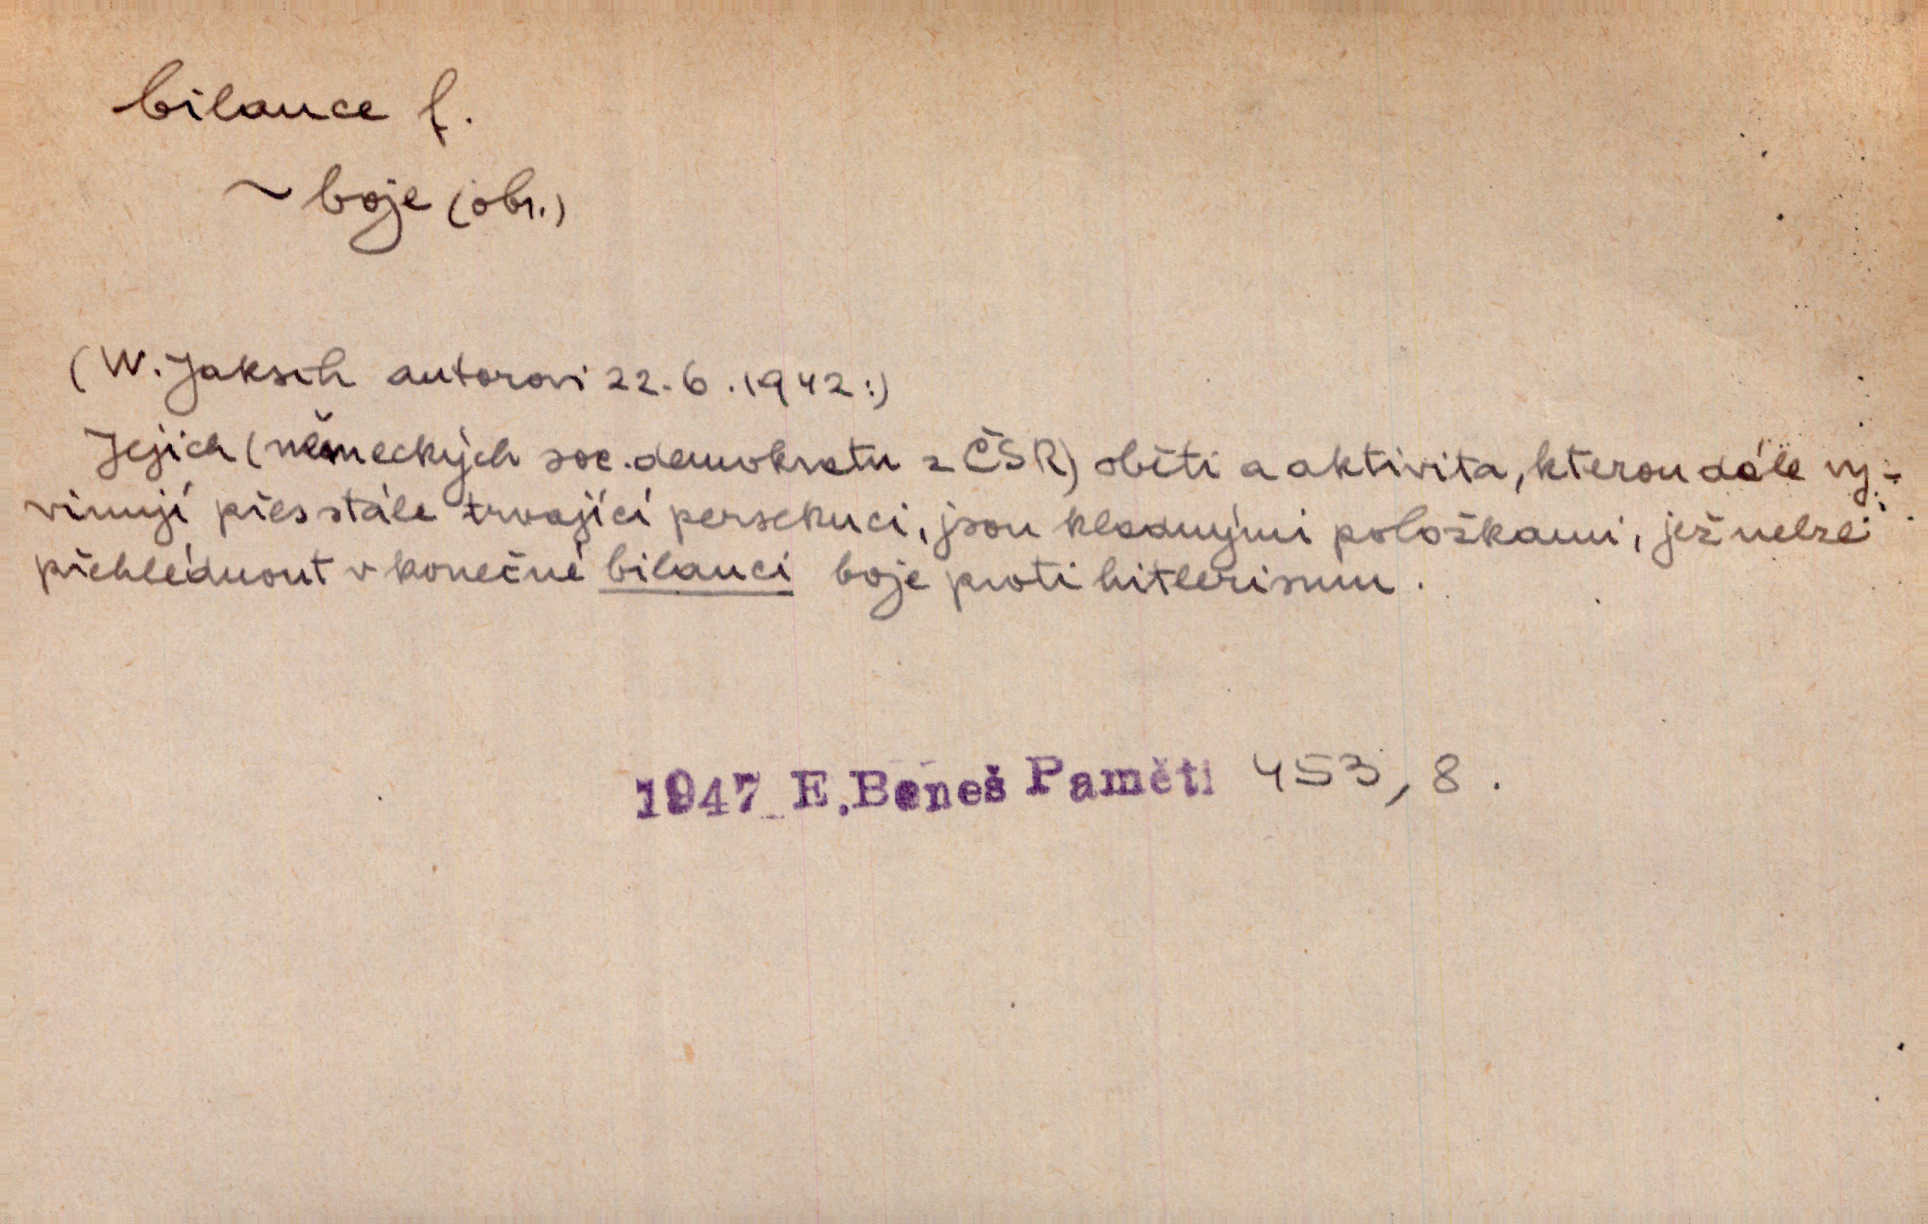 bilance f.
~ boje (obr.)
(W. Jaksch autorovi 22.6.1942:)
Jejich (německých soc. demokratu z ČSR) oběti a aktivita, kterou dále vy-
vinují přes stále trvající persekuci, jsou kladnými položkami, jež nelze
přehlédnout v konečné bilanci boje proti hitlerismu.
1947 E. Beneš Paměti 453, 8.